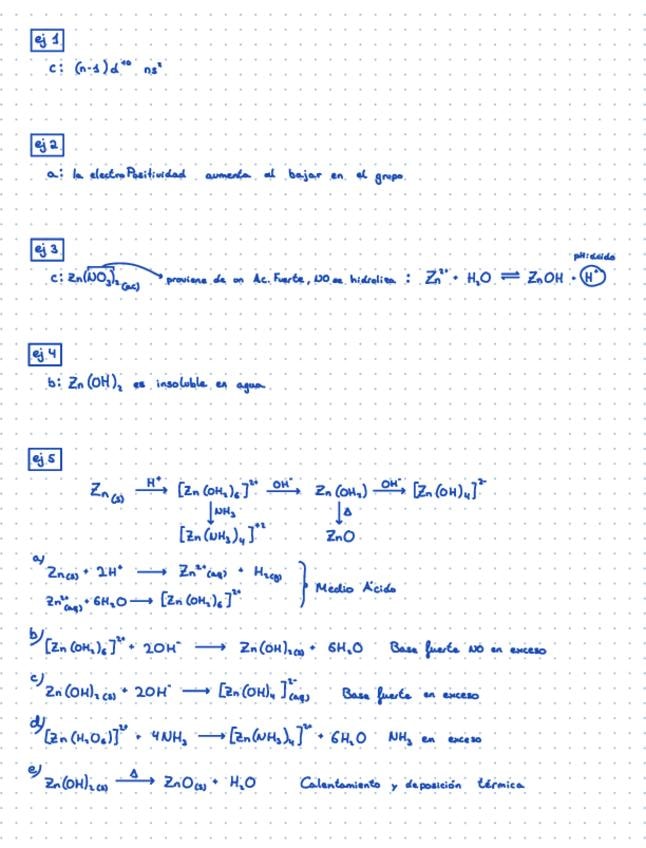 ej 1
c: (n-1)d¹⁰ ns²
ej 2
a: la electroPositividad aumenta al bajar en el grupo
ej 3
pH: ácido
c: Zn(NO₃)₂(ac) → proviene de un Ac. Fuerte, NO se hidroliza : Zn²⁺ + H₂O ⇌ ZnOH + H⁺
ej 4
b: Zn(OH)₂ es insoluble en agua
ej 5
Zn(s) —H⁺→ [Zn(OH₂)₆]²⁺ —OH⁻→ Zn(OH₂) —OH⁻→ [Zn(OH)₄]²⁻
↓NH₃ ↓Δ
[Zn(NH₃)₄]⁺² ZnO
a) Zn(s) + 2H⁺ → Zn²⁺(aq) + H₂(g)
Zn²⁺(aq) + 6H₂O → [Zn(OH₂)₆]²⁺ } Medio Ácido
b) [Zn(OH₂)₆]²⁺ + 2OH⁻ → Zn(OH)₂(s) + 6H₂O Base fuerte NO en exceso
c) Zn(OH)₂(s) + 2OH⁻ → [Zn(OH)₄]²⁻(aq) Base fuerte en exceso
d) [Zn(H₂O₆)]²⁺ + 4NH₃ → [Zn(NH₃)₄]²⁺ + 6H₂O NH₃ en exceso
e) Zn(OH)₂(s) —Δ→ ZnO(s) + H₂O Calentamiento y deposición térmica